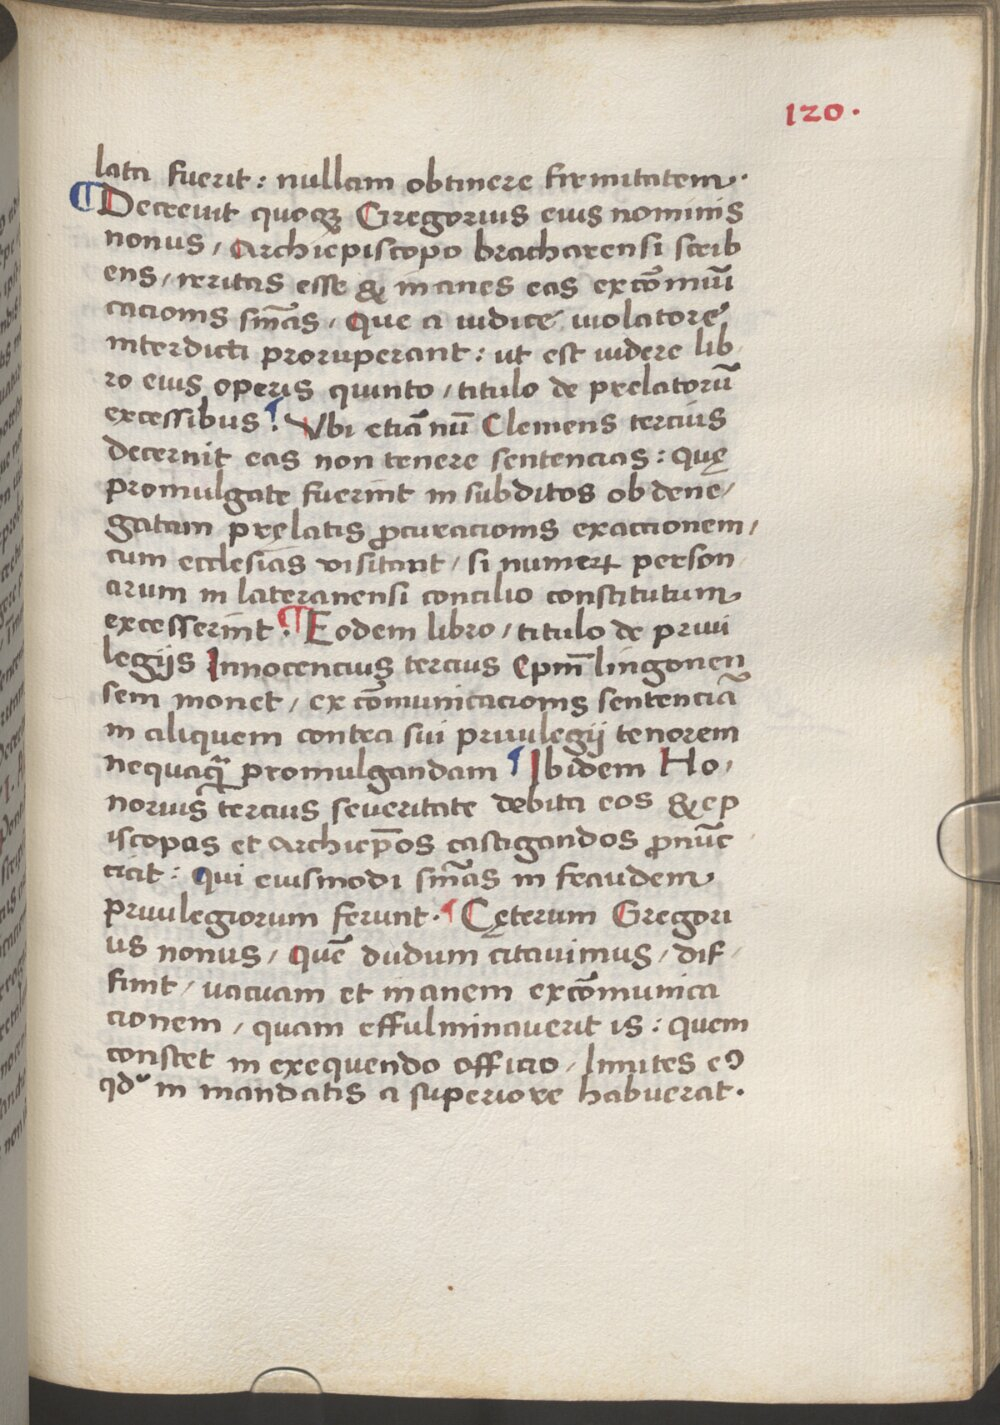 120.
lata fuerit: nullam obtinere firmitatem.
¶Decreuit quoqꝫ Gregorius eius nominis
nonus / Archiepiscopo bracharensi scrib
ens / irritas esse & inanes eas excōmūi
cacionis sm̄as / Que a iudice uiolatore
interdicti proruperant: ut est uidere lib
ro eius operis quinto / titulo de prelatorū
excessibus. ¶ Vbi etiā nū Clemens tercius
decernit eas non tenere sentencias: quę
promulgate fuerint in subditos ob dene/
gatam pręlatis ꝓcuracionis exactionem /
cum ecclesias visitant / si numerꝝ person
arum in lateranensi concilio constitutum
excesserint. ¶Eodem libro / titulo de priui
legijs Innocencius tercius epm̄ lingonen
sem monet / excōmunicacionis sentenciā
in aliquem contra sui priuilegij tenorem
nequaq̄ promulgandam ¶ Ibidem Ho/
norius tercius seueritate debita eos & ep
iscopas et Archiep̄os castigandos ꝓnūc
ciat: qui eiusmodi sm̄as in fraudem
priuilegiorum ferunt. ¶ Cęterum Gregori
us nonus / quē dudum citauimus / dif
finit / uacuam et inanem excōmunica
cionem / quam effulminauerit is: quem
constet in exequendo officio / limites eꝰ
qd in mandatis a superiore habuerat.